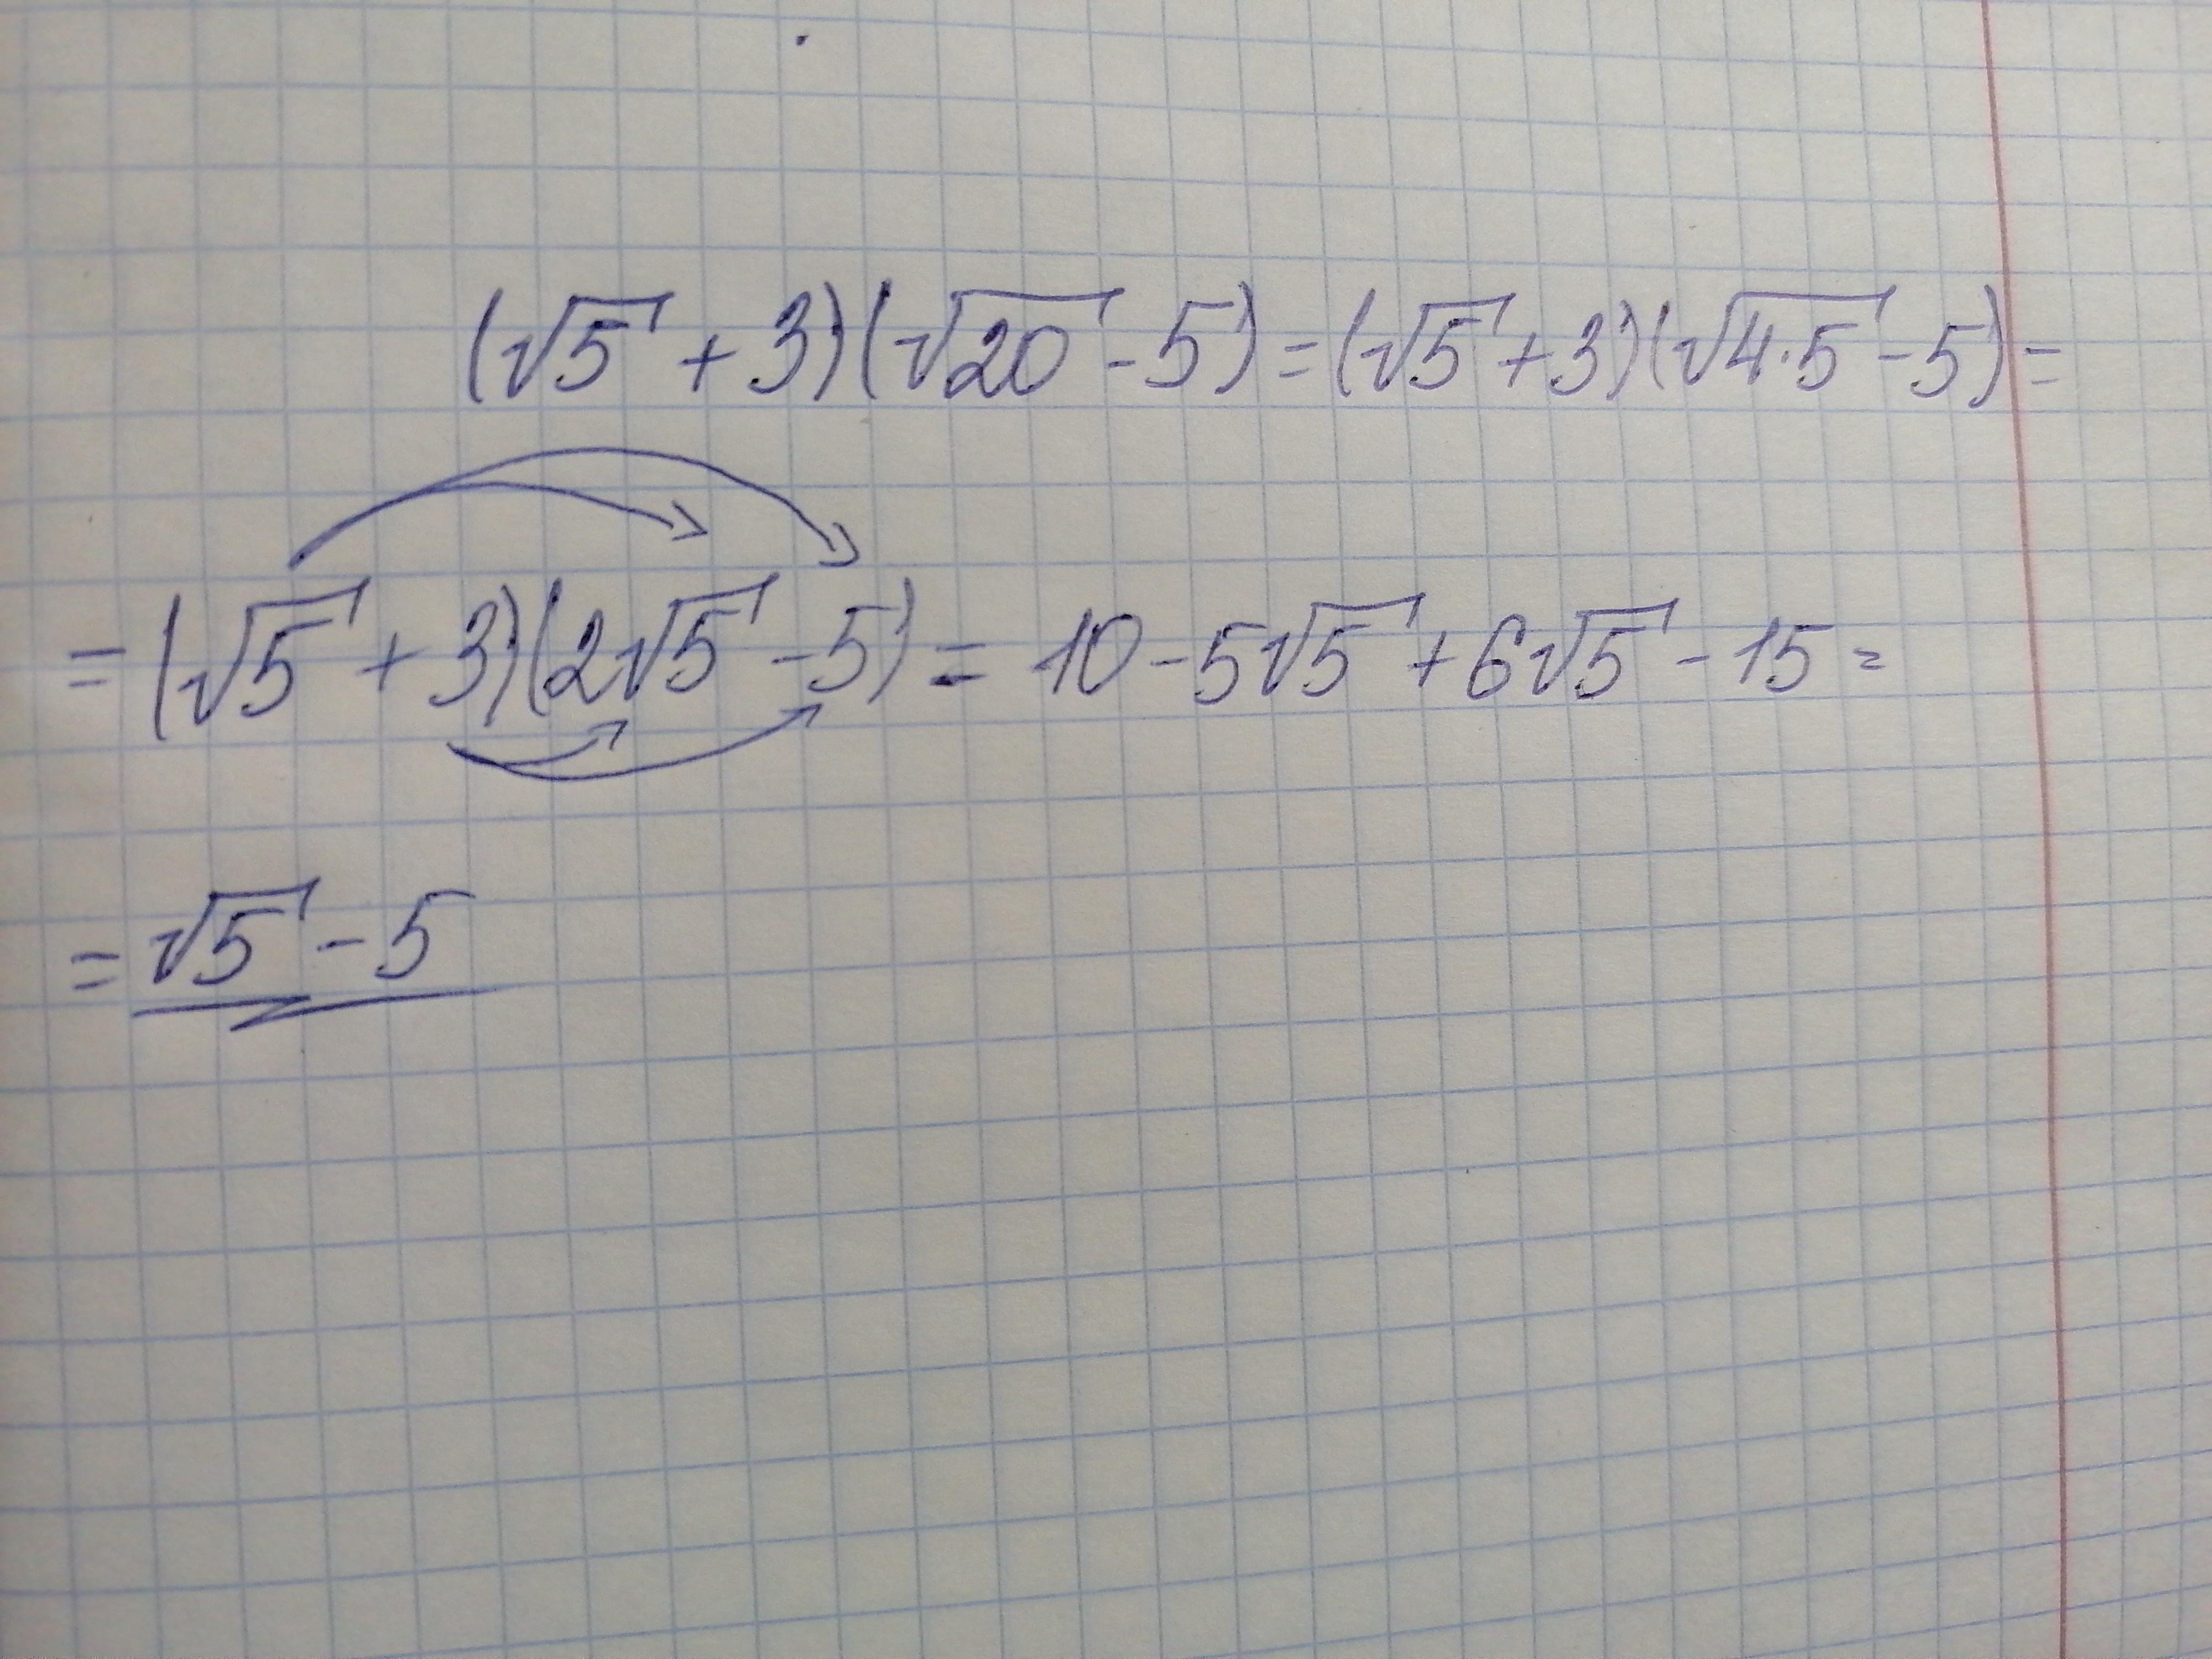 (√5 + 3)(√20 - 5) = (√5 + 3)(√4·5 - 5) =
= (√5 + 3)(2√5 - 5) = 10 - 5√5 + 6√5 - 15 =
= √5 - 5